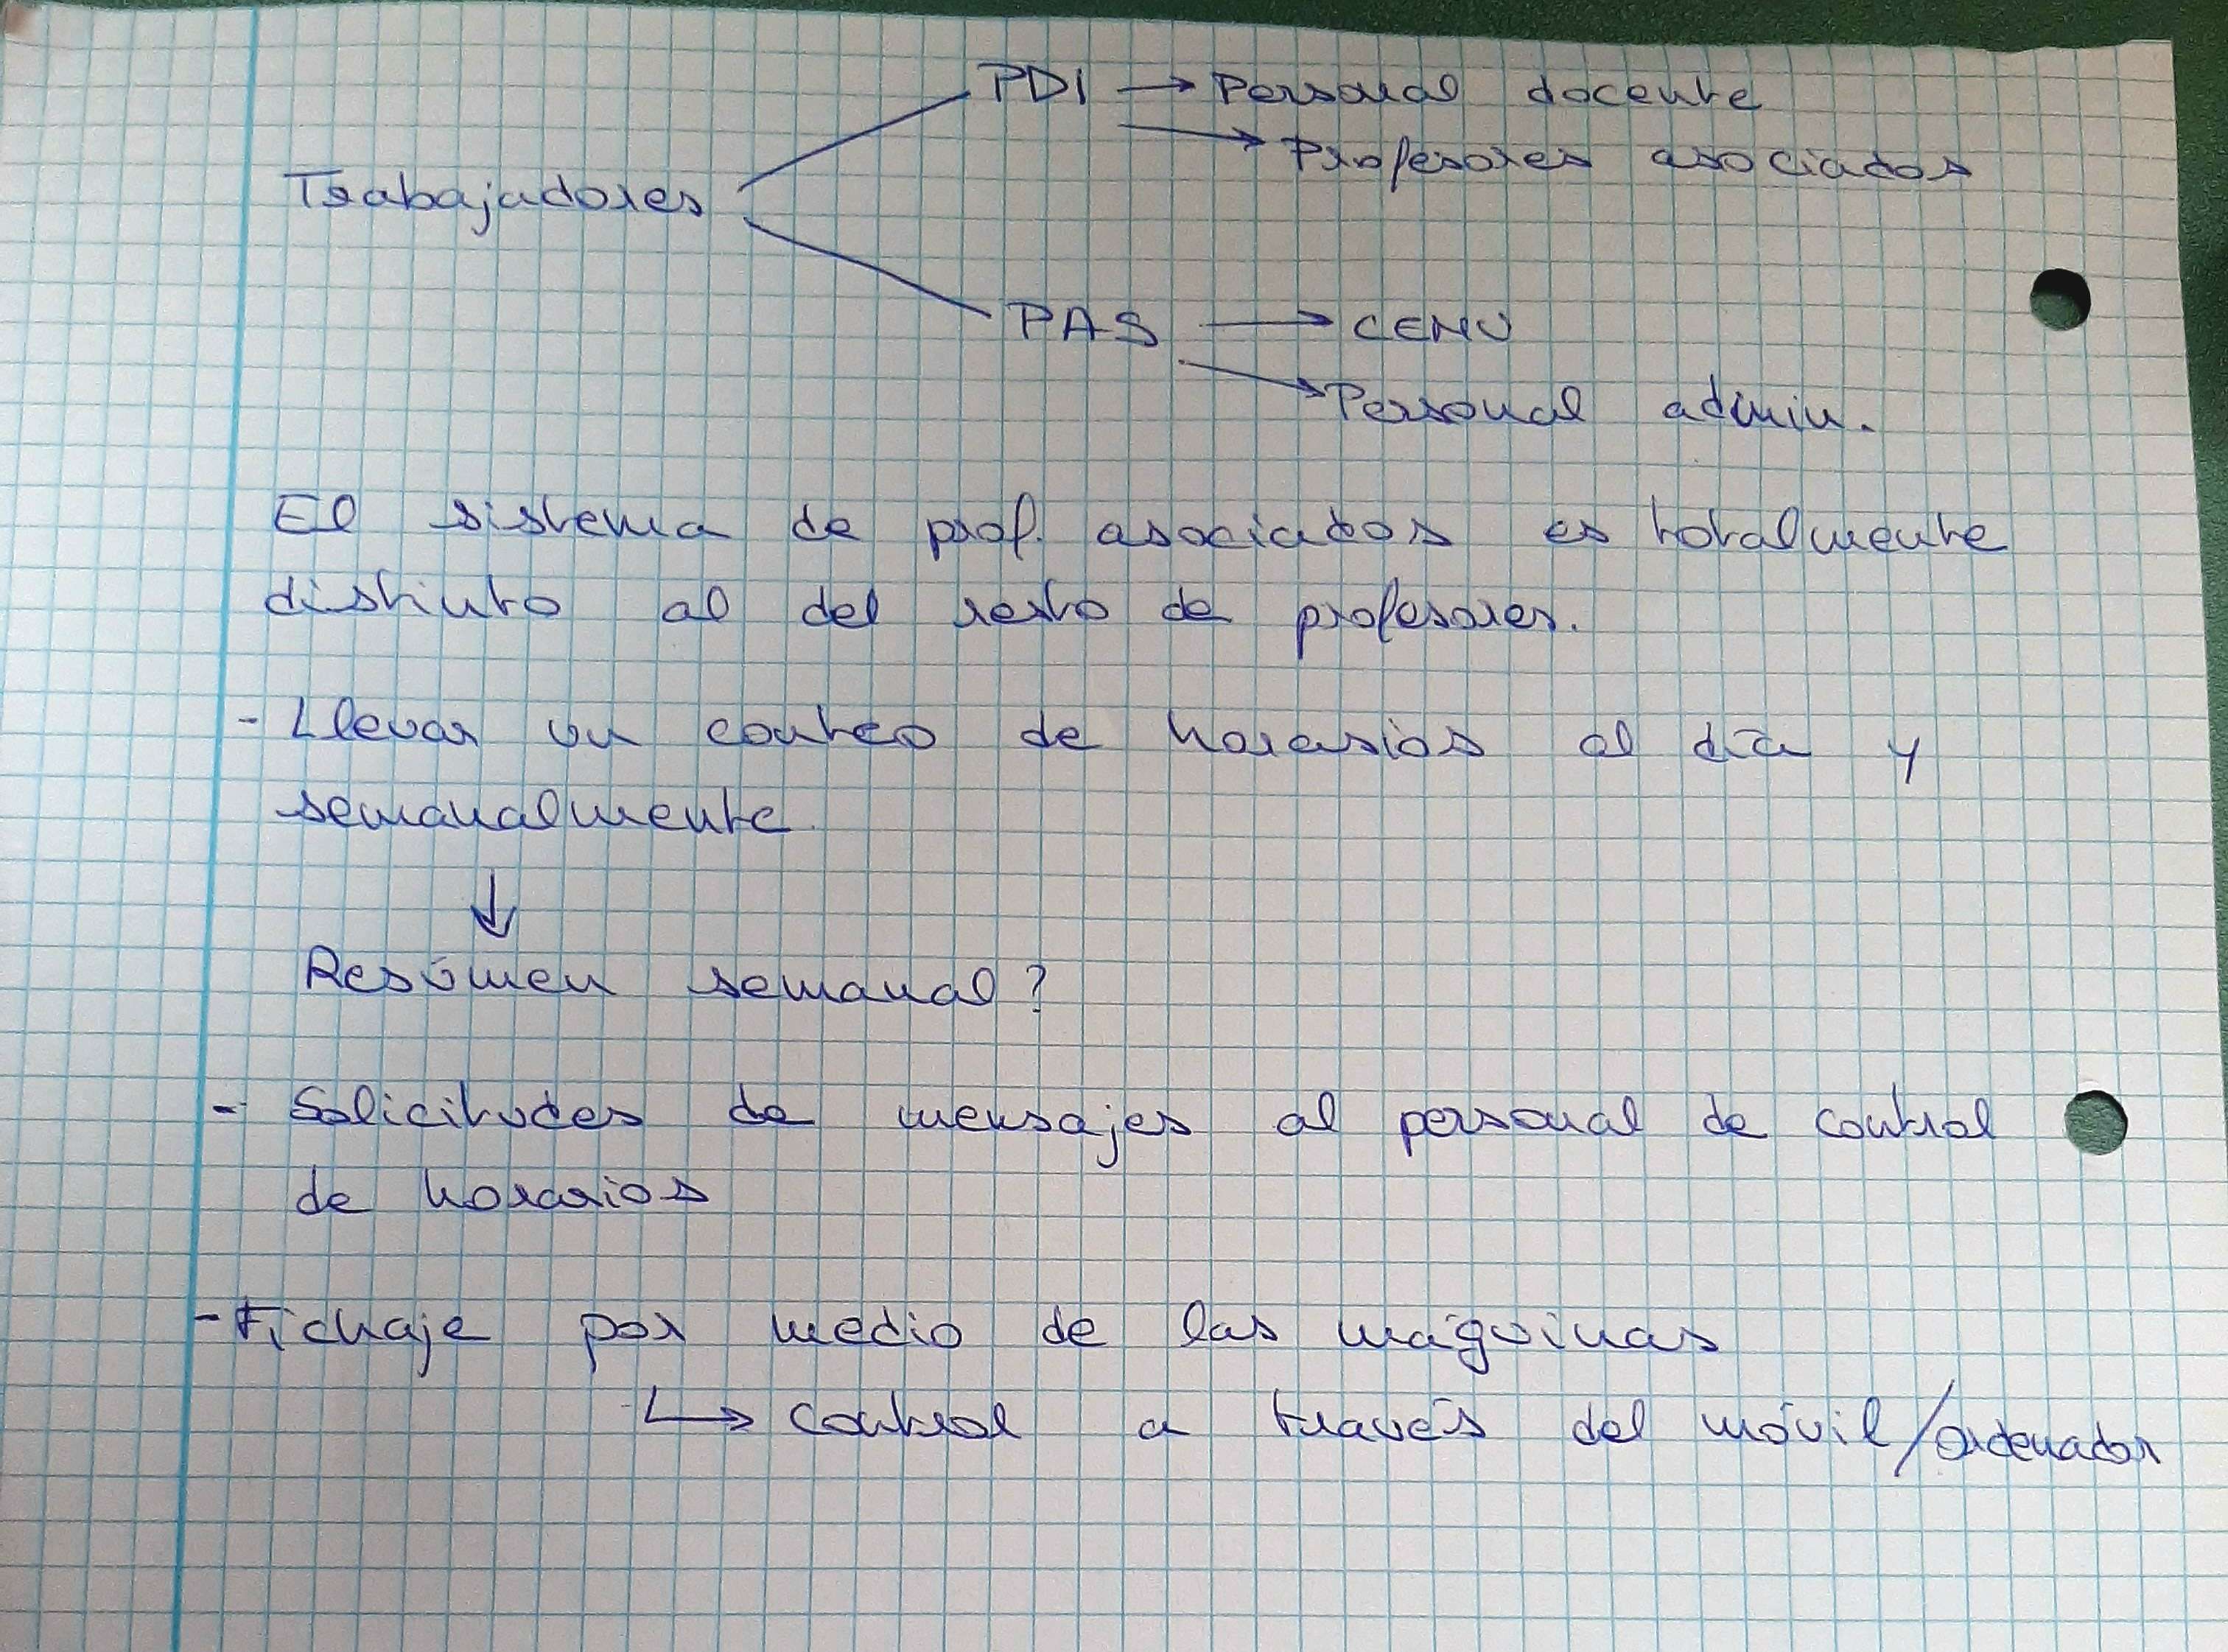 PDI → Personal docente
→ Profesores asociados
Trabajadores
PAS → CEMU
→ Personal admin.
El sistema de prof. asociados es totalmente
distinto al del resto de profesores.
- Llevar un conteo de horarios al día y
semanalmente.
↓
Resúmen semanal?
- Solicitudes de mensajes al personal de control
de horarios
- Fichaje por medio de las máquinas
↳ control a través del móvil/ordenador